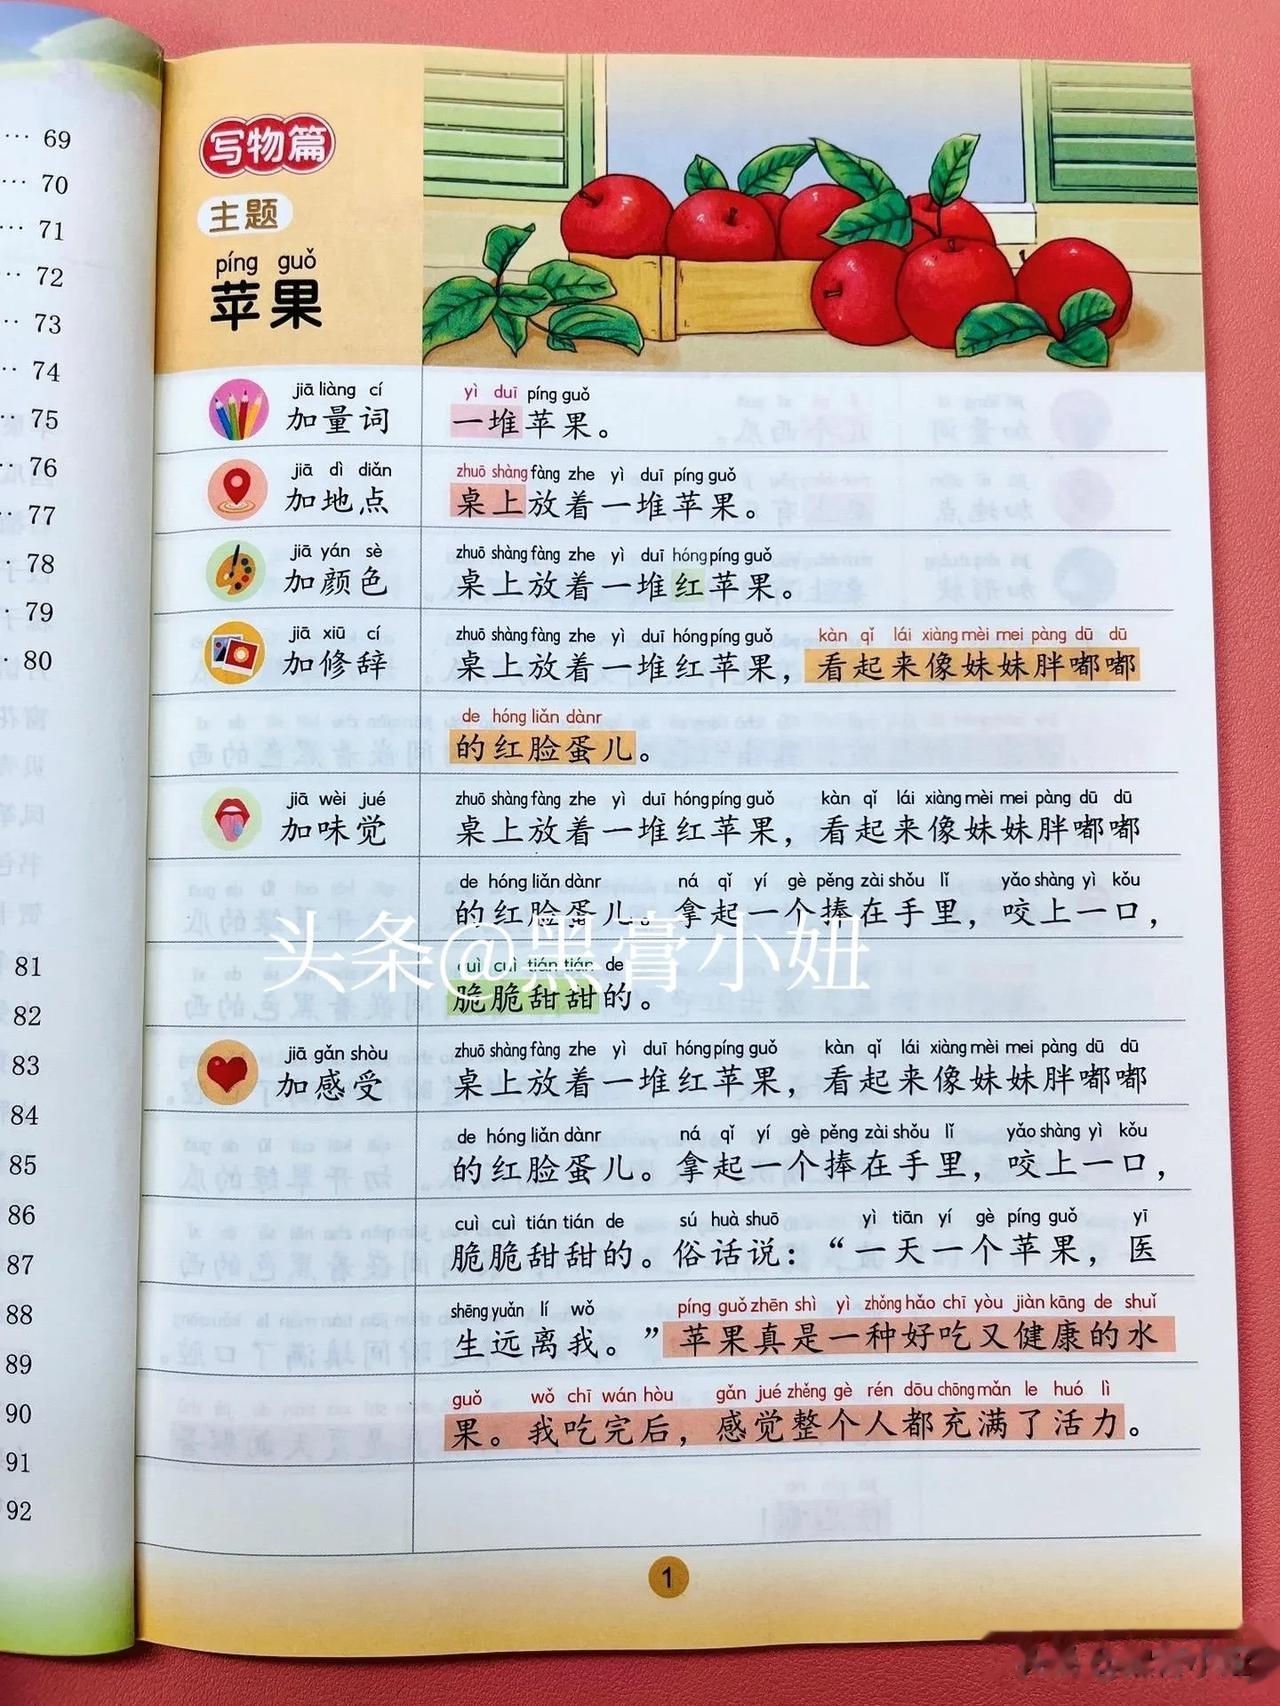 … 69
… 70
… 71
… 72
… 73
… 74
… 75
… 76
… 77
… 78
… 79
… 80
81
82
83
84
85
86
87
88
89
90
91
92
写物篇
主题
píng guǒ
苹果
jiā liàng cí
加量词
yì duī píng guǒ
一堆苹果。
jiā dì diǎn
加地点
zhuō shàng fàng zhe yì duī píng guǒ
桌上放着一堆苹果。
jiā yán sè
加颜色
zhuō shàng fàng zhe yì duī hóng píng guǒ
桌上放着一堆红苹果。
jiā xiū cí
加修辞
zhuō shàng fàng zhe yì duī hóng píng guǒ kàn qǐ lái xiàng mèi mei pàng dū dū
桌上放着一堆红苹果，看起来像妹妹胖嘟嘟
de hóng liǎn dànr
的红脸蛋儿。
jiā wèi jué
加味觉
zhuō shàng fàng zhe yì duī hóng píng guǒ kàn qǐ lái xiàng mèi mei pàng dū dū
桌上放着一堆红苹果，看起来像妹妹胖嘟嘟
de hóng liǎn dànr ná qǐ yí gè pěng zài shǒu lǐ yǎo shàng yì kǒu
的红脸蛋儿。拿起一个捧在手里，咬上一口，
头条@黑膏小妞
cuì cuì tián tián de
脆脆甜甜的。
jiā gǎn shòu
加感受
zhuō shàng fàng zhe yì duī hóng píng guǒ kàn qǐ lái xiàng mèi mei pàng dū dū
桌上放着一堆红苹果，看起来像妹妹胖嘟嘟
de hóng liǎn dànr ná qǐ yí gè pěng zài shǒu lǐ yǎo shàng yì kǒu
的红脸蛋儿。拿起一个捧在手里，咬上一口，
cuì cuì tián tián de sú huà shuō yì tiān yí gè píng guǒ yī
脆脆甜甜的。俗话说：“一天一个苹果，医
shēng yuǎn lí wǒ píng guǒ zhēn shì yì zhǒng hǎo chī yòu jiàn kāng de shuǐ
生远离我。”苹果真是一种好吃又健康的水
guǒ wǒ chī wán hòu gǎn jué zhěng gè rén dōu chōng mǎn le huó lì
果。我吃完后，感觉整个人都充满了活力。
1